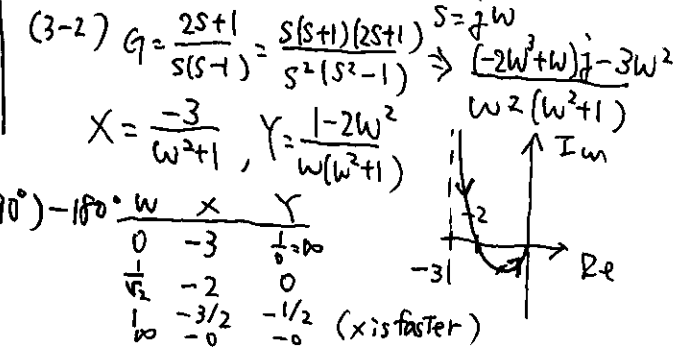 (3-2) G = 2S+1 / S(S-1) = S(S+1)(2S+1) / S²(S²-1) S=jω ⇒ (-2ω³+ω)j-3ω² / ω²(ω²+1)
X = -3 / ω²+1 , Y = 1-2ω² / ω(ω²+1)
Im
90°)-180° ω X Y
0 -3 1/0=∞
-2
-3
Re
1/√2 -2 0
1 -3/2 -1/2 (x is faster)
∞ -0 -0